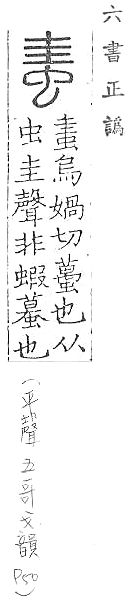 六書正譌
烏媧切蠆也从
虫圭聲非蝦蟇也
(平聲 五哥戈韻 P50)